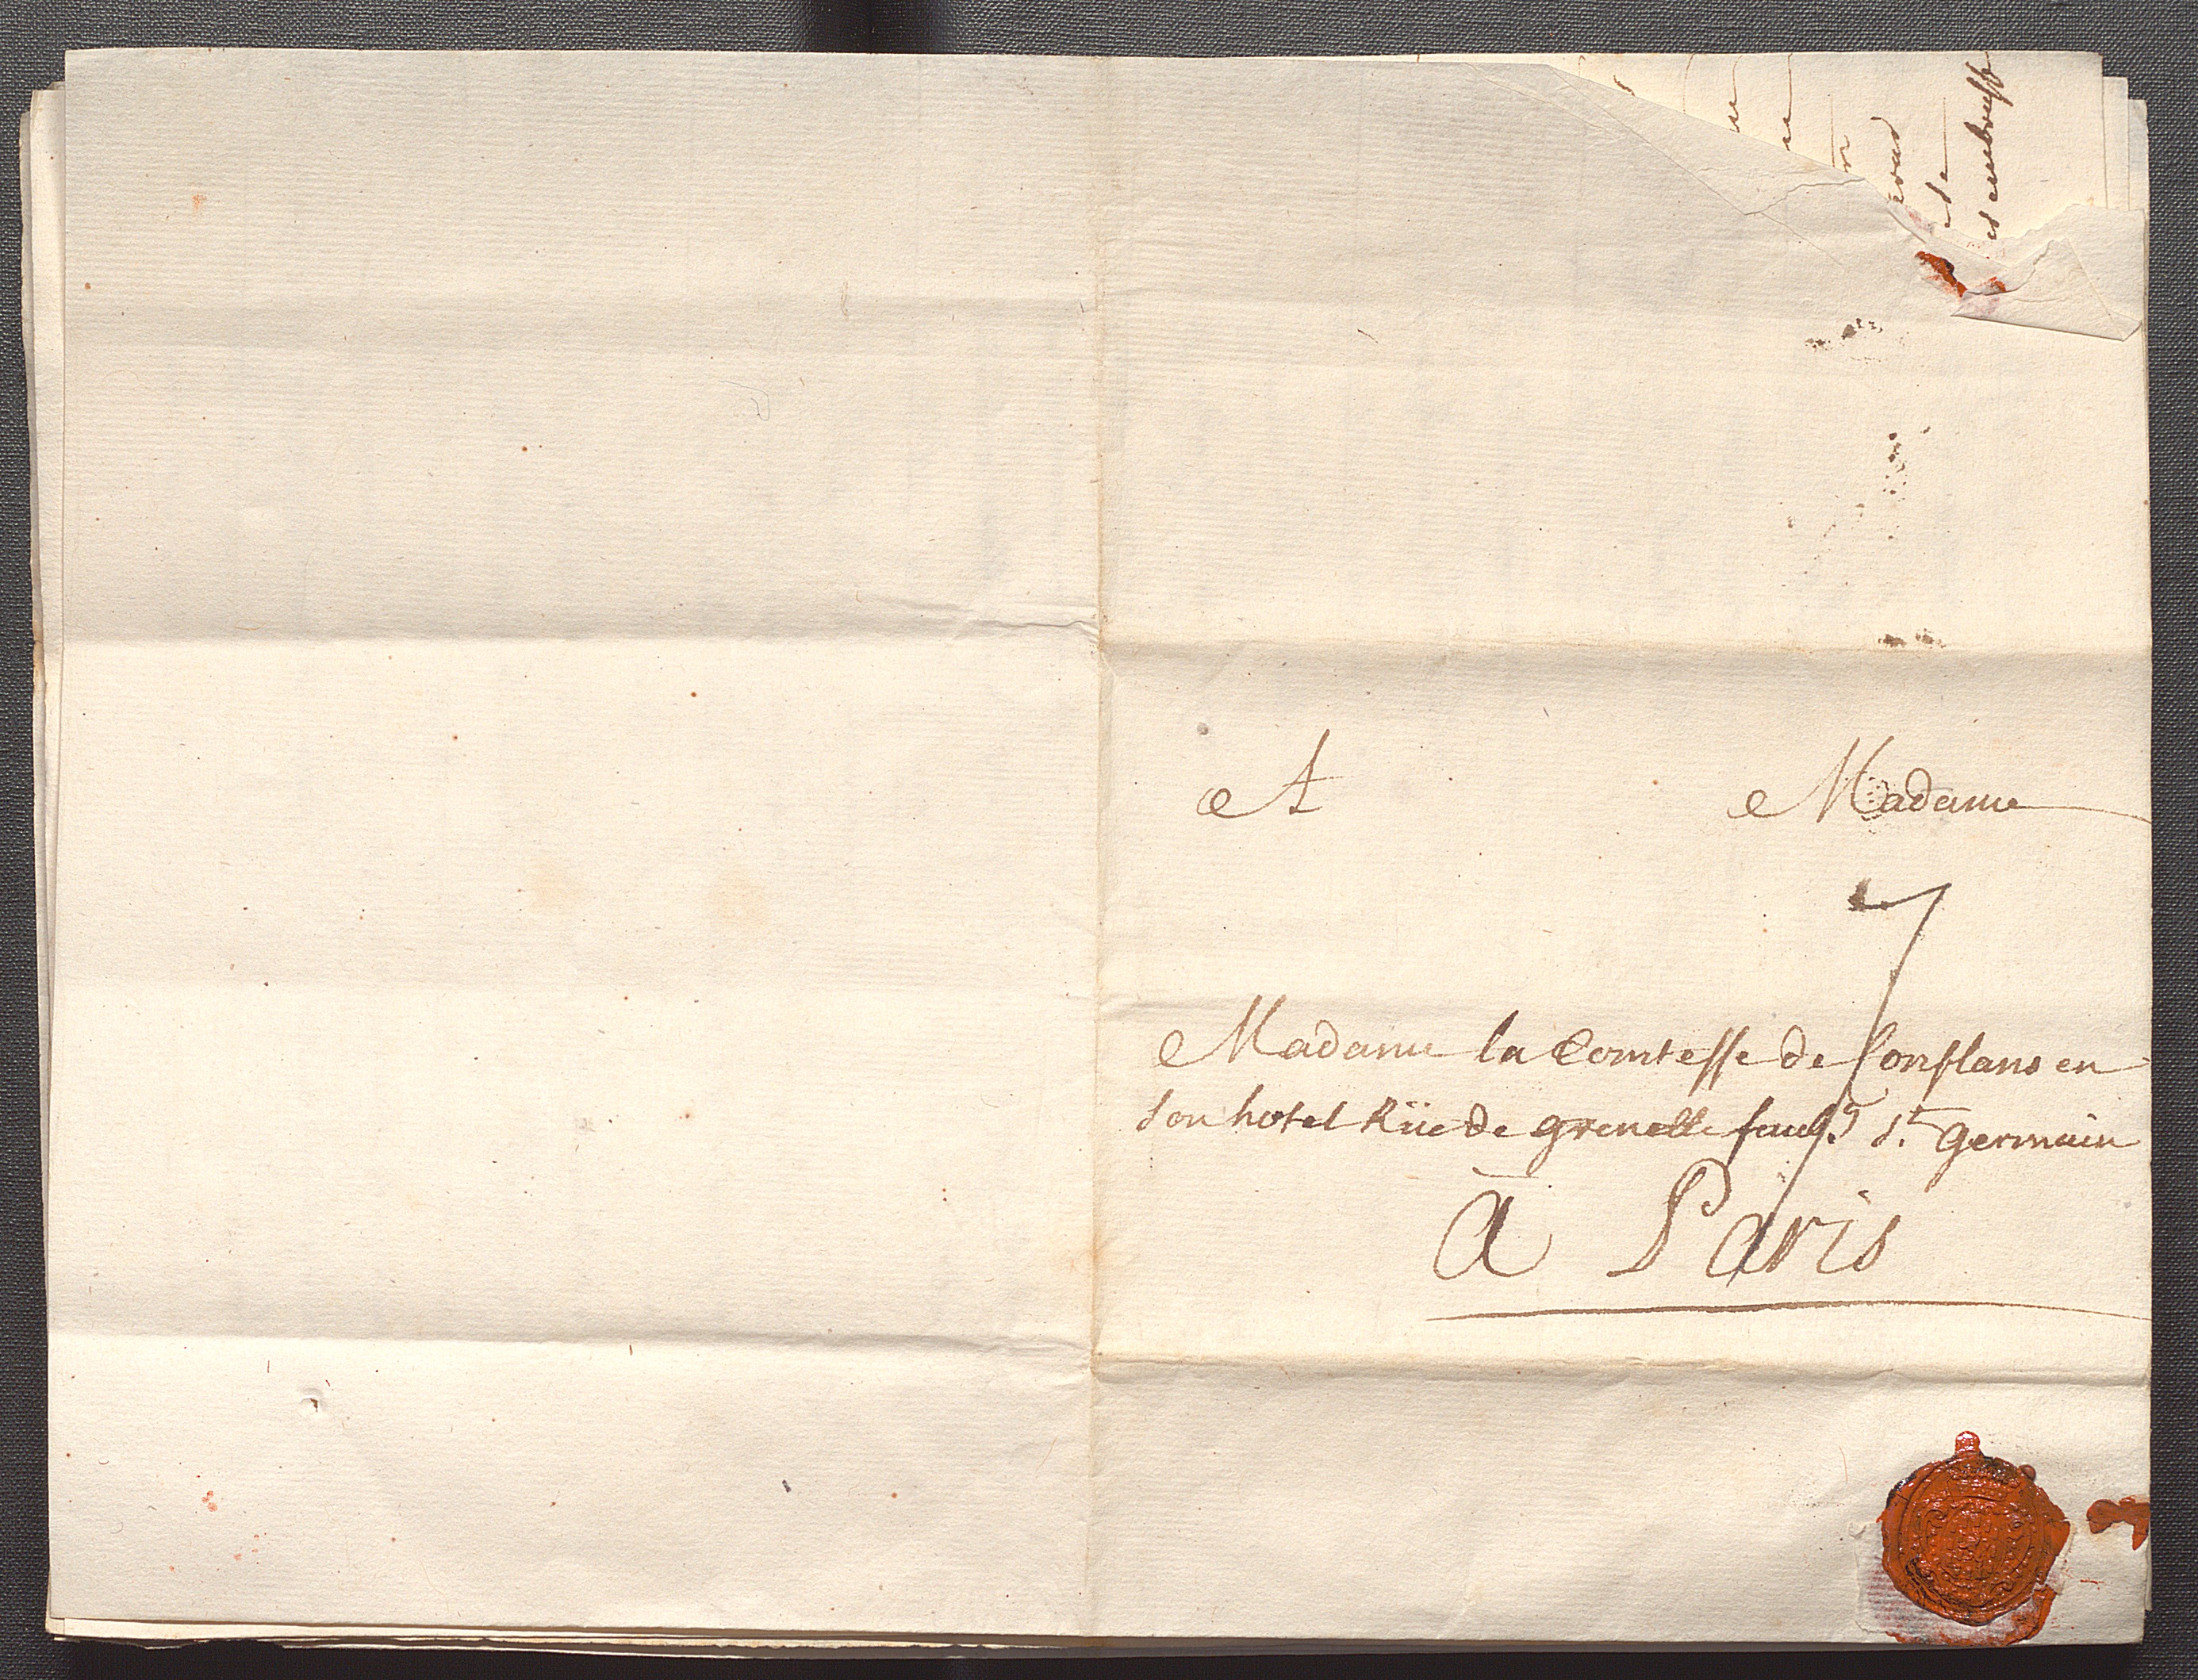 A Madame
7
Madame la Comtesse de Conflans en
son hotel Rüe de grenelle faubg St germain
à Paris
et de
et embrasse